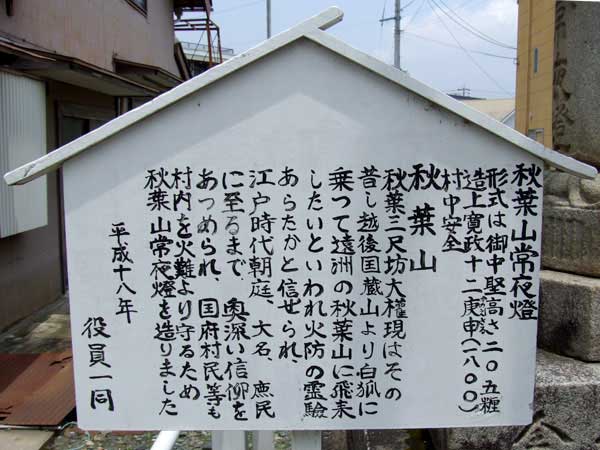 秋葉山常夜燈
形式は御中竪高さ二〇五糎
造上寛政十二庚申(一八〇〇)
村中安全
秋葉山
秋葉三尺坊大権現はその
昔し越後国蔵山より白狐に
乗つて遠洲の秋葉山に飛来
したいといわれ火防の霊験
あらたかと信せられ、
江戸時代朝庭、大名、庶民
に至るまで、奥深い信仰を
あつめられ、国府村民等も
村内を火難より守るため
秋葉山常夜燈を造りました
平成十八年
役員一同